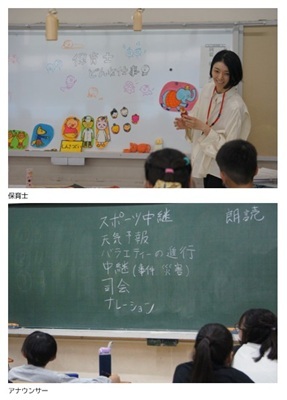 保育士
どんな仕事
保育士
スポーツ中継
朗読
天気予報
バラエティーの進行
中継(事件 災害)
司会
ナレーション
アナウンサー